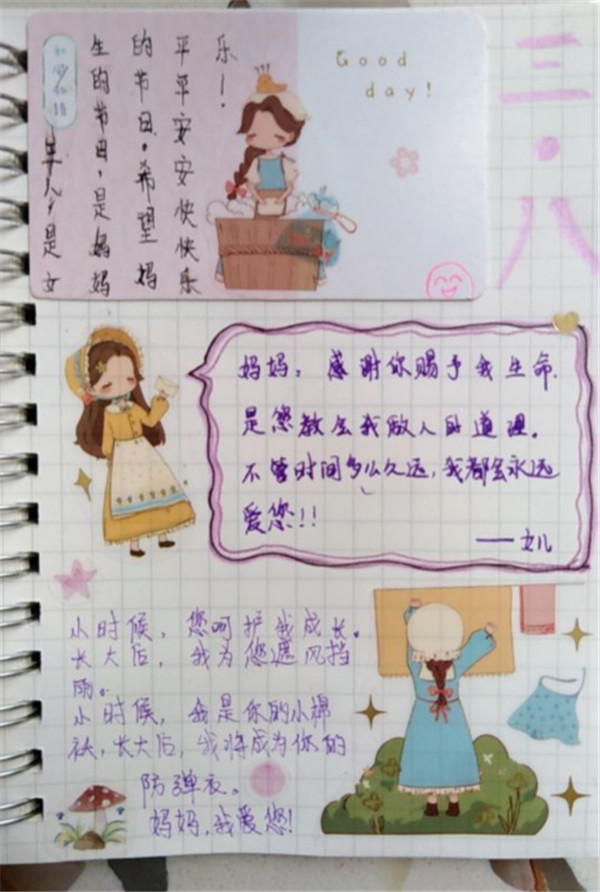 三·八
Good
day!
是女
生的节日,是妈妈
的节日。希望妈
平平安安快快乐
乐!
妈妈:感谢你赐予我生命.
是您教会我做人的道理。
不管时间多么久远,我都会永远
爱您!!
——女儿
小时候,您呵护我成长。
长大后,我为您遮风挡
雨。
小时候,我是你的小棉
袄,长大后,我将成为你的
防弹衣。
妈妈,我爱您!